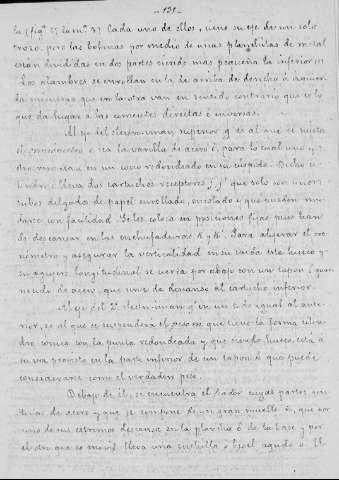 - 131 -
la (fig.ª 5ª Lam.ª 3ª) Cada uno de ellos, tiene su eje de un solo
trozo, pero las bobinas por medio de unas planchitas de metal
están divididas en dos partes siendo mas pequeña la inferior
Los alambres se enrollan en la de arriba de derecha á izquier
da mientras que en la otra van en sentido contrario que es lo
que da lugar á las corrientes directas é inversas.
Al eje del electro-iman superior g es al que se sujeta
el cronómetro ó sea la varilla de acero
otro rematan en un cono redondeado en su cúspide. Dicho ci
lindro lleva dos cartuchos receptores j j' que solo son unos
tubos delgados de papel enrollado, encolado y que pueden mu
darse con facilidad. Se les coloca en posiciones fijas pues han
de descansar en las enchufaduras k y k'. Para aligerar el cro
nómetro y asegurar la verticalidad en su caida está hueco y
su agujero longitudinal se cierra por abajo con un tapon
de acero, que sirve de descanso al cartucho inferior.
Al eje del 2º electro-iman g' en un todo igual al ante
rior, es al que se suspenderá el peso que tiene la forma cilin
dro cónica con la punta redondeada y que siendo hueco, está á
su vez provisto en la parte inferior de un tapon ó que puede
considerarse como el verdadero peso.
Debajo de él, se encuentra el fiador cuyas partes son
todas de acero y que se compone de un gran muelle ó, que por
uno de sus extremos descansa en la plancha ó de la base y por
el otro que es movil lleva una cuchilla ó bisel agudo ó. El